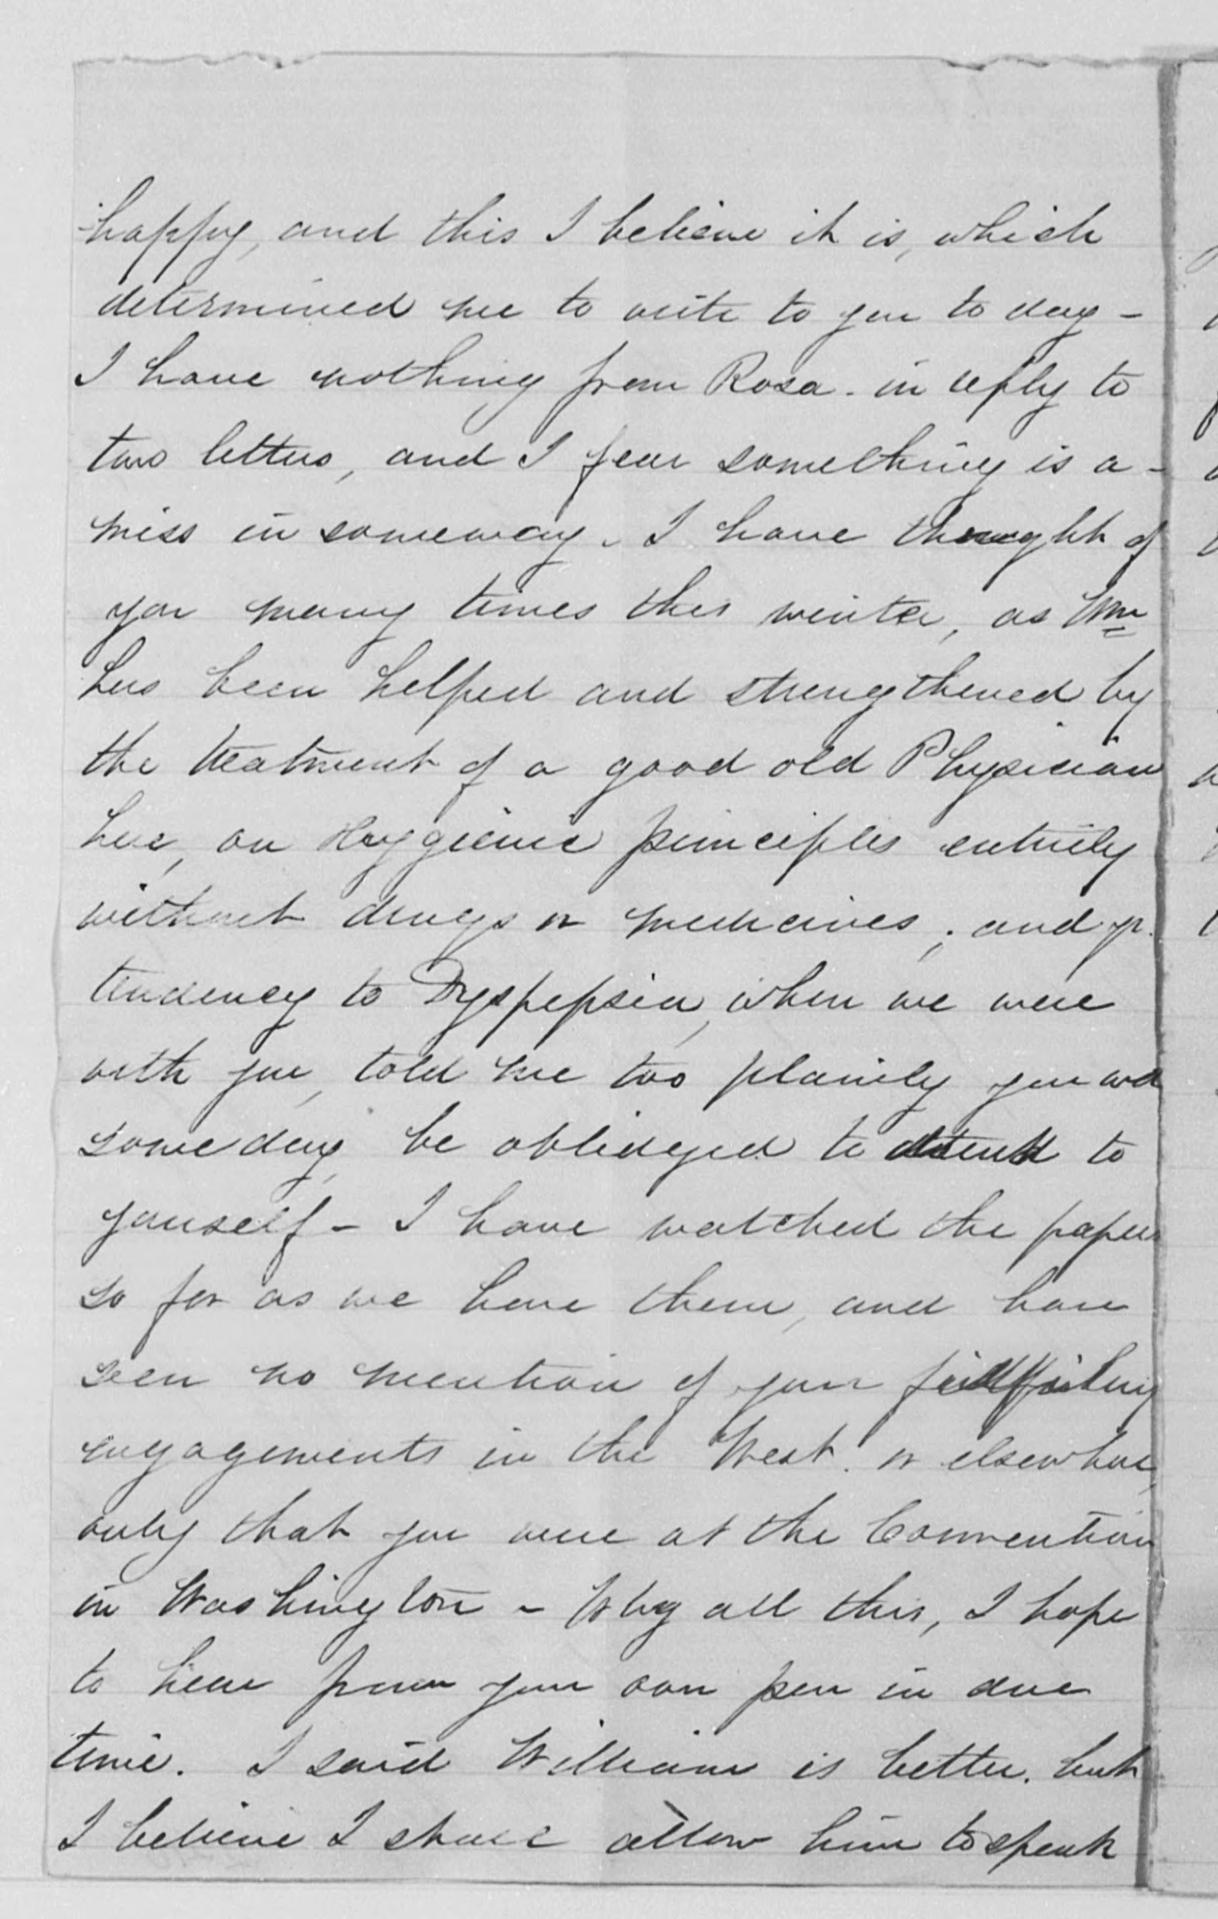 happy, and this I believe it is, which
determined me to write to you to day –
I have nothing from Rosa. in reply to
two letters, and I fear something is a-
miss in someway. I have thought of
you many times this winter, as Wm
has been helped and strengthened by
the treatment of a good old Physician
here, on Hyggienic principles entirely
without drugs or medicines, and yr.
tendency to Dyspepsia, when we were
with you, told me too plainly you wd
some day, be obliedged to attend to
yourself – I have watched the papers
so far as we have them, and have
seen no mention of your fulfilling
engagements in the West. or elsewhere,
only that you were at the Convention
in Washington – Why all this, I hope
to hear from your own pen in due
time. I said William is better. but
I believe I shall allow him to speak